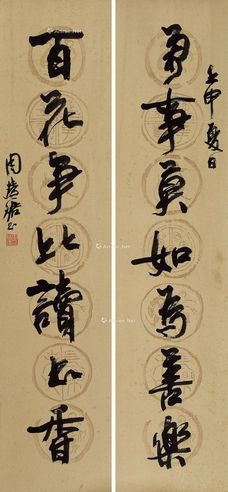 壬申夏日
萬事莫如為善樂
百花爭比讀書香
周慧珺书